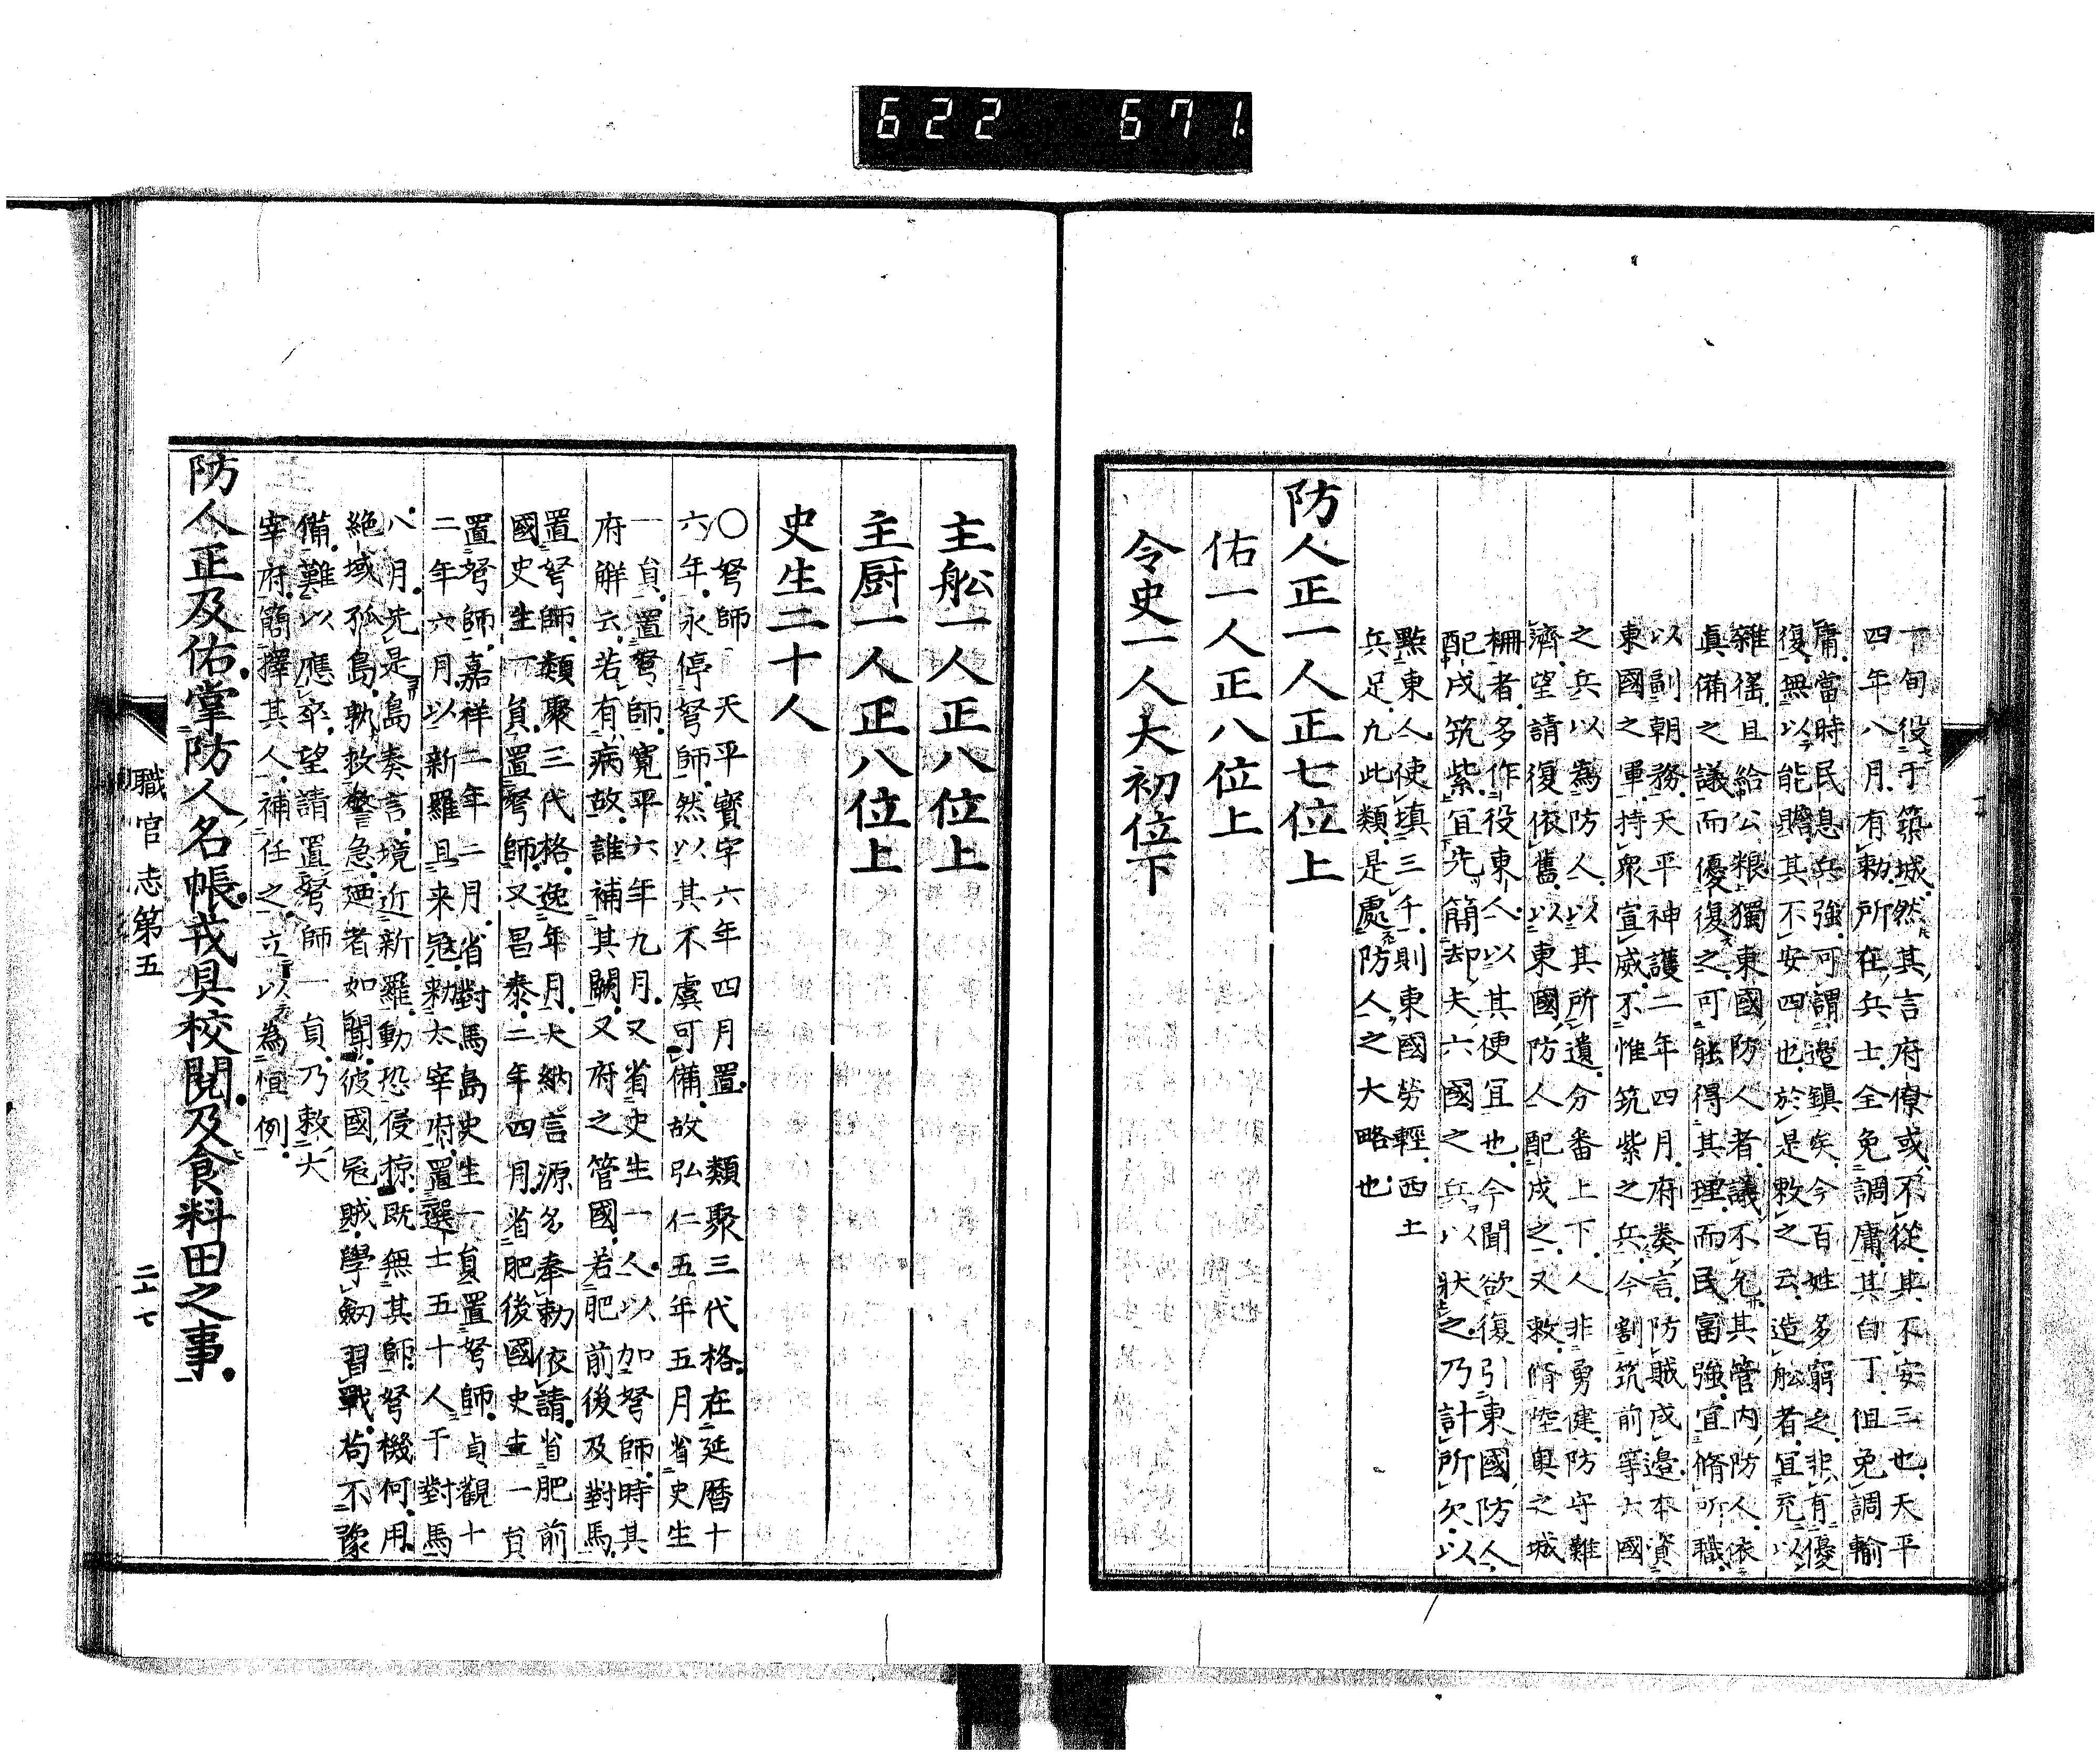 622 671.
一旬役于築城然其言府僚或不從其不安三也天平
四年八月有勅所在兵士全免調庸其白丁但免調輸
庸當時民息兵強可謂邊鎭矣今百姓多窮之非有優
復無以能贍其不安四也於是敕之云造舩者宜充以
雜徭且給公粮獨東國防人者議不允其管內防人依
眞備之議而優復之可能得其理而民富強宜脩所職
以副朝務天平神護二年四月府奏言防賊戍邊本資
東國之軍持衆宣威不惟筑紫之兵今割筑前等六國
之兵以為防人以其所遺分番上下人非勇健防守難
濟望請復依舊以東國防人配戍之又敕脩陸奧之城
柵者多作役東人以其便宜也今聞欲復引東國防人
配戍筑紫宜先簡却夫六國之兵以狀之乃計所欠以
點東人使填三千則東國勞輕西土
兵足九此類是處防人之大略也
防人正一人正七位上
佑一人正八位上
令史一人大初位下
主舩一人正八位上
主厨一人正八位上
史生二十人
〇弩師 天平寳字六年四月置 類聚三代格在延暦十
六年永停弩師然以其不虞可備故弘仁五年五月省史生
一貟置弩師寛平六年九月又省史生一人以加弩師時其
府解云若有病故誰補其闕又府之管國若肥前後及對馬
置弩師類聚三代格逸年月大納言源多奉勅依請省肥前
國史生一貟置弩師又昌泰二年四月省肥後國史生一貟
置弩師嘉祥二年二月省對馬島史生一貟置弩師貞觀十
二年六月以新羅且来冦勅太宰府置選士五十人于對馬
八月先是島奏言境近新羅動恐侵掠既無其師弩機何用
絶域孤島軌救警急廼者如聞彼國冦賊學劒習戰苟不豫
備難以應卒望請置弩師一貟乃敕大
宰府簡擇其人補任之立以為恒例
防人正及佑掌防人名帳戎具校閲及食料田之事
職官志第五
二十七